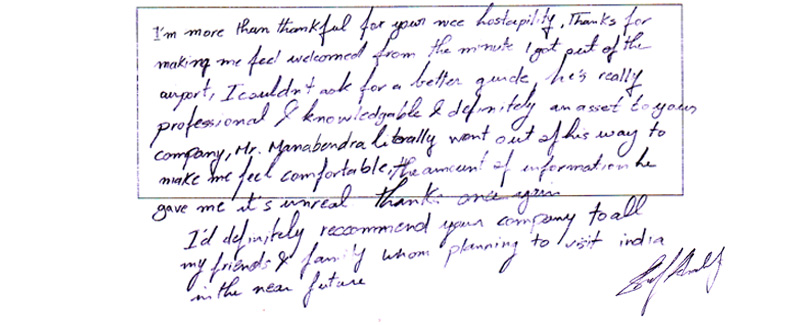 I'm more than thankful for your nice hostapility, Thanks for
making me feel welcomed from the minute I got out of the
airport, I couldn't ask for a better guide, he's really
professional & knowledgable & definitely an asset to your
company, Mr. Manabendra literally went out of his way to
make me feel comfortable, the amount of information he
gave me it's unreal thanks once again
I'd definitely reccommend your company to all
my friends & family whom planning to visit india
in the near future